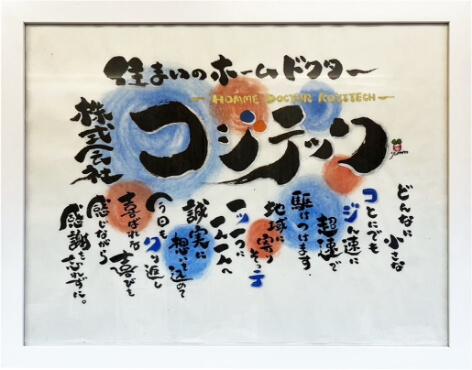 住まいのホームドクター
HOMME DOCTOR KOJITECH
株式会社
コジテック
どんなに
小さな
コとにでも
ジん速に
超速で
駆けつけます
地域に
寄りそっテ
一ッ一つに
一人一人へ
誠実に
想いを込めて
今日もクり返し
喜ばれる喜びを
感じながら
感謝を忘れずに。